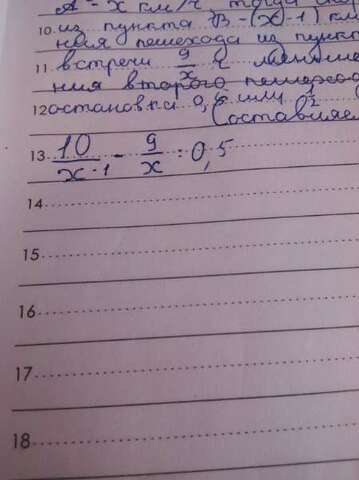 А - x км/ч, тогда
10. из пункта В - (x - 1) км
ния пешехода из пункт
11 встречи 9/x ч
ния второго пешехода
12 остановки 0,5 или 1/2
(составляем
13. 10/(x - 1) - 9/x = 0,5
14
15
16
17
18